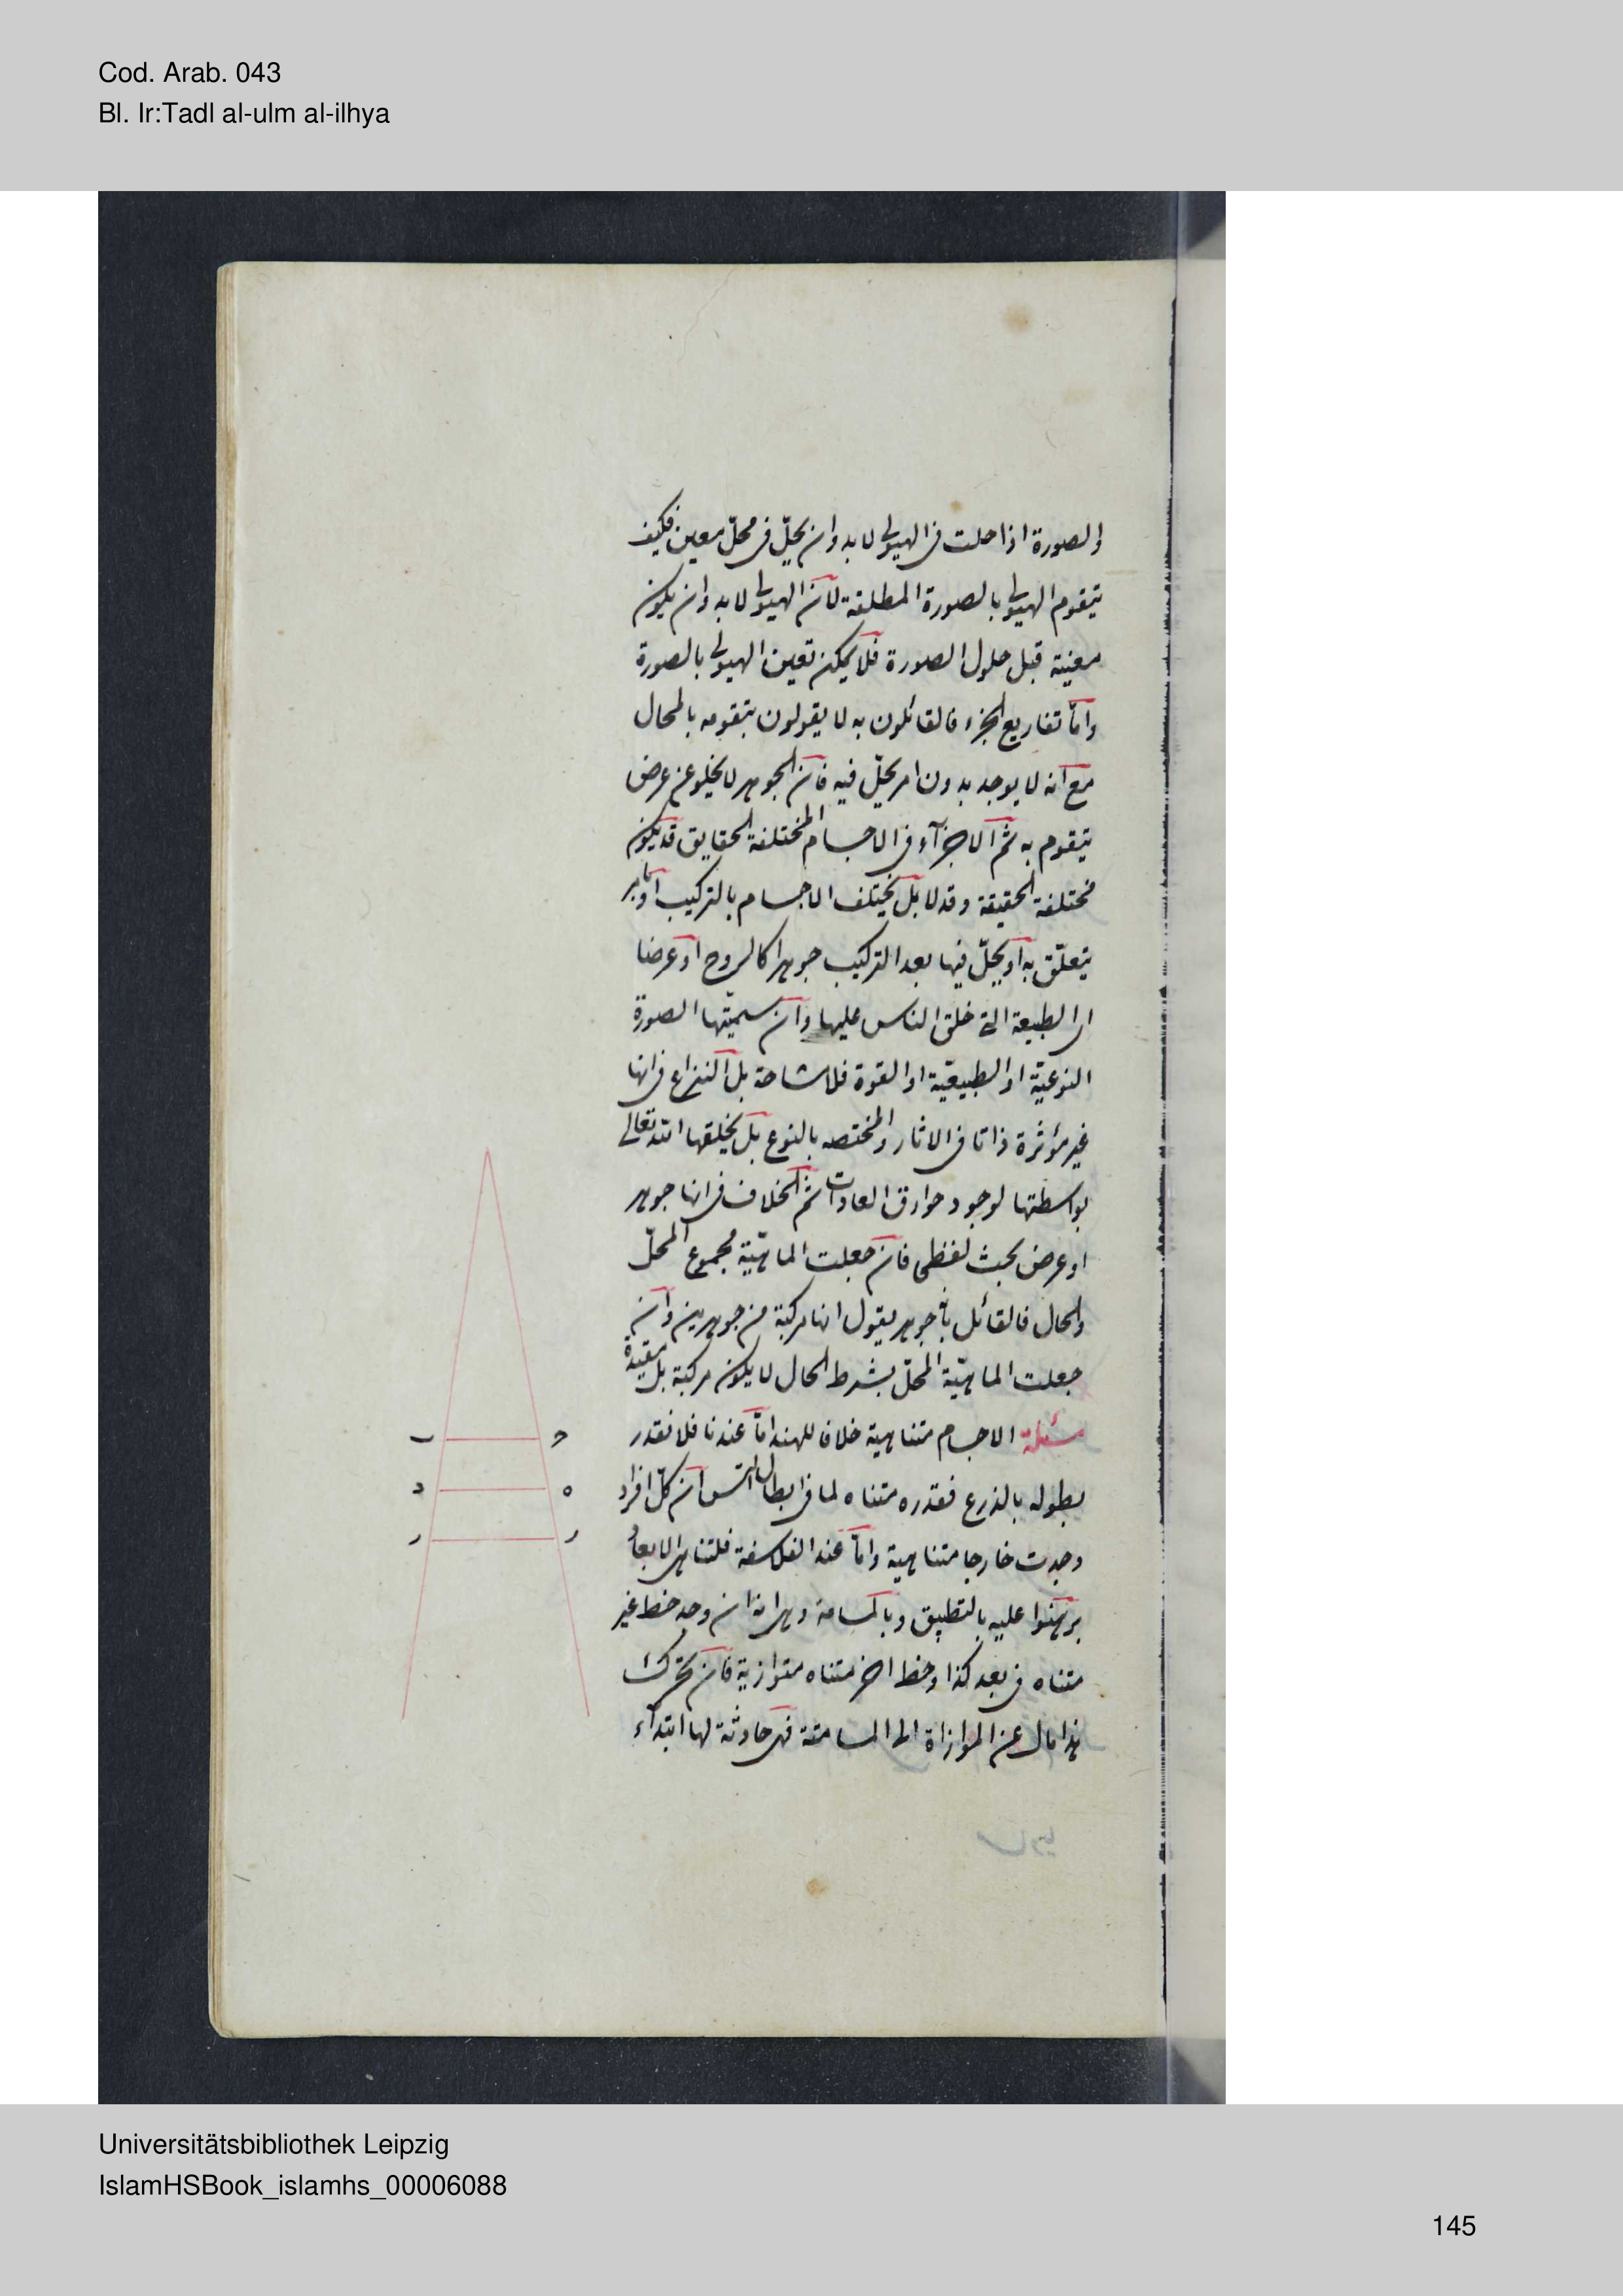 Cod. Arab. 043
Bl. Ir:Tadl al-ulm al-ilhya
والصورة اذا حلت فى الهيولى لا بد وان يحلّ فى محلّ معين فكيف
يتقوم الهيولى بالصورة المطلقة لانّ الهيولى لا بد وان يكون
معينة قبل حلول الصورة فلا يمكن تعين الهيولى بالصورة
وامّا تفاريع الجزء فالقائلون به لا يقولون بتقومه بالمحال
مع انه لا يوجد بدون امر يحلّ فيه فان الجوهر لا يخلو عن عرض
يتقوم به ثم الاجزآء فى الاجسام المختلفة الحقايق قد يكون
مختلفة الحقيقة وقد لا بل يختلف الاجسام بالتركيب او بامر
يتعلّق به او يحلّ فيها بعد التركيب جوهرا كالروح او عرضا
اى الطبيعة التى خلق الناس عليها وان سميّتها الصورة
النوعيّة او الطبيعيّة او القوة فلا مشاحة بل النزاع فى انها
غير مؤثرة ذاتا فى الاثار والمختصه بالنوع بل يخلقها الله تعالى
بواسطتها لوجود خوارق العادات ثم الخلاف فى انها جوهر
او عرض بحث لفظى فان جعلت الماهيّة مجموع المحلّ
والحال فالقائل بانه جوهر يقول انها مركبة من جوهرين وان
جعلت الماهيّة المحلّ بشرط الحال لا يكون مركبة بل مقيدة
مسئلة الاجسام متناهية خلافا للهند امّا عندنا فلانّ قدر
بطوله بالذرع فقدره متناه لما فى ابطال التس ان كلّ افراد
وجدت خارجا متناهية وامّا عند الفلاسفة فلتناهى الابعاد
برهنوا عليه بالتطبيق وبالمسامتة وهى انه ان وجد خط غير
متناه فى بعد كذا وخط اخر متناه متوازية فان تحرك
هذا مال عن الموازاة الى المسامتة فهى حادثة لها ابتدآء
ب
ح
د
ه
ر
ز
Universitätsbibliothek Leipzig
IslamHSBook_islamhs_00006088
145